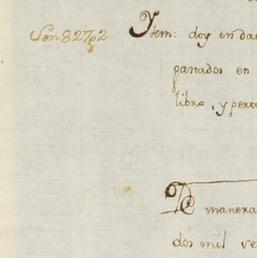 Son 827p2
Ytem: doy en da
gastados en
libro, y per
De manera
dos mil ve